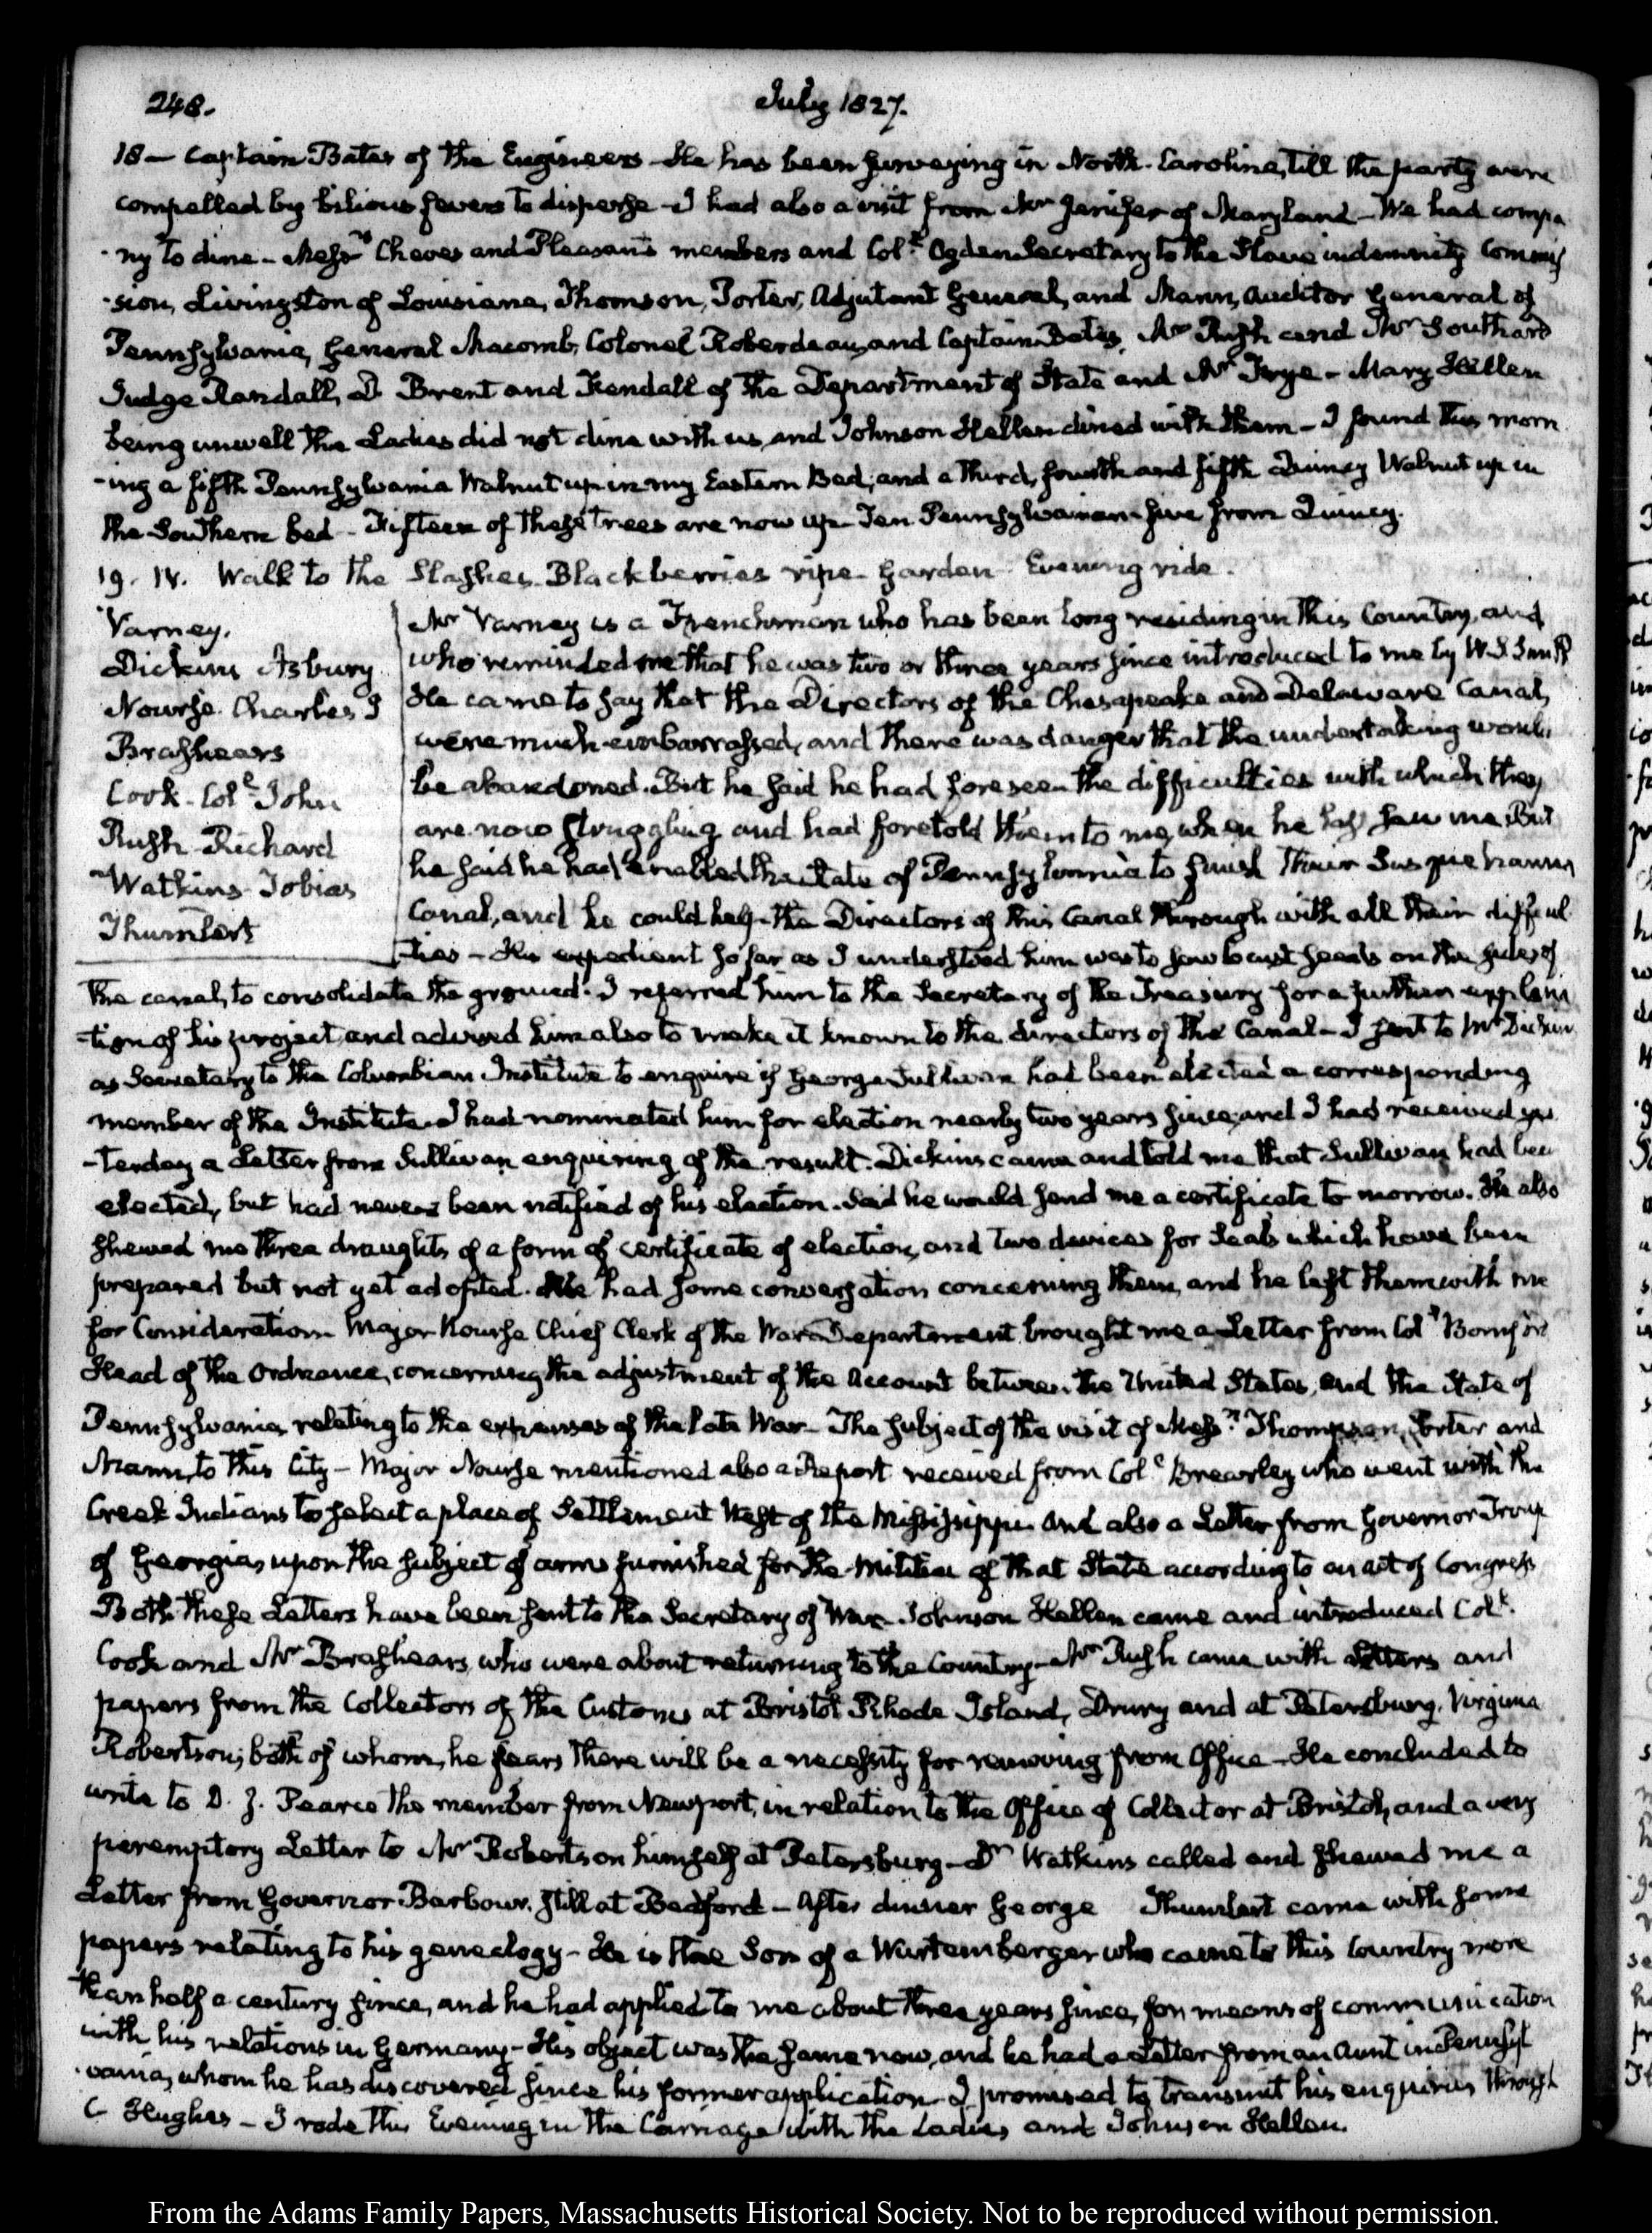 248.
July 1827.
18 — Captain Bates of the Engineers - He has been surveying in North-Carolina, till the party were
compelled by bilious fevers to disperse - I had also a visit from Mr Jenifer of Maryland - We had compa
-ny to dine - Messrs Cheves and Pleasants members and Coll. Ogden Secretary to the Slave indemnity Commis
-sion, Livingston of Louisiana, Thomson, Porter, Adjutant General, and Mann, Auditor General of
Pennsylvania, General Macomb, Colonel Roberdeau, and Captain Bates, Mr Rush and Mr Southard
Judge Randall, D Brent and Kendall of the Department of State and Mr Frye - Mary Hellen
being unwell the Ladies did not dine with us, and Johnson Hellen dined with them - I found this morn
-ing a fifth Pennsylvania Walnut up in my Eastern Bed, and a third, fourth and fifth Quincy Walnut up in
the Southern bed - Fifteen of these trees are now up Ten Pennsylvanian five from Quincy.
19. IV. Walk to the Slashes. Blackberries ripe - Garden - Evening ride.
Varney.
Dickins Asbury
Nourse. Charles J
Brashears
Cook. Coll John
Rush Richard
Watkins Tobias
Thumlert
Mr Varney is a Frenchman who has been long residing in this Country, and
who reminded me that he was two or three years since introduced to me by W. S. Smith
He came to say that the Directors of the Chesapeake and Delaware Canal,
were much embarrassed, and there was danger that the undertaking would
be abandoned. But he said he had foreseen the difficulties with which they
are now struggling and had foretold them to me, when he last saw me. But
he said he had enabled the State of Pennsylvania to finish their Susquehanna
Canal, and he could help the Directors of this Canal through with all their difficul
-ties - His expedient so far as I understood him was to sow locust seeds on the sides of
the canal, to consolidate the ground. I referred him to the Secretary of the Treasury for a further explana
-tion of his project, and advised him also to make it known to the directors of the Canal - I sent to Mr Dickins
as Secretary to the Columbian Institute to enquire if George Sullivan had been elected a corresponding
member of the Institute. I had nominated him for election nearly two years since, and I had received yes
-terday a Letter from Sullivan enquiring of the result. Dickins came and told me that Sullivan had been
elected, but had never been notified of his election. Said he would send me a certificate to morrow. He also
shewed me three draughts of a form of certificate of election, and two devices for Seals which have been
prepared but not yet adopted. We had some conversation concerning them, and he left them with me
for Consideration. Major Nourse Chief Clerk of the War Department brought me a Letter from Coll Bomford
Head of the Ordnance, concerning the adjustment of the Account between the United States, and the State of
Pennsylvania, relating to the expenses of the late War - The subject of the visit of Messrs Thompson, Porter and
Mann, to this City - Major Nourse mentioned also a Report received from Coll Brearley who went with the
Creek Indians to select a place of Settlement West of the Mississippi. And also a Letter from Governor Troup
of Georgia, upon the subject of arms furnished for the Militia of that State according to an act of Congress
Both these Letters have been sent to the Secretary of War. Johnson Hellen came and introduced Coll.
Cook and Mr Brashears, who were about returning to the Country - Mr Rush came with Letters and
papers from the Collectors of the Customs at Bristol Rhode Island, Drury and at Petersburg, Virginia
Robertson; both of whom, he fears there will be a necessity for removing from Office - He concluded to
write to D. J. Pearce the member from Newport, in relation to the Office of Collector at Bristol, and a very
peremptory Letter to Mr Robertson himself at Petersburg - Dr Watkins called and shewed me a
Letter from Governor Barbour, still at Bedford - After dinner George Thumlert came with some
papers relating to his genealogy - He is the Son of a Wurtemberger who came to this Country more
than half a century since, and he had applied to me about three years since, for means of communication
with his relations in Germany - His object was the same now, and he had a Letter from an Aunt in Pennsyl
-vania, whom he has discovered since his former application. I promised to transmit his enquiries through
C Hughes - I rode this Evening in the Carriage with the Ladies and Johnson Hellen.
From the Adams Family Papers, Massachusetts Historical Society. Not to be reproduced without permission.